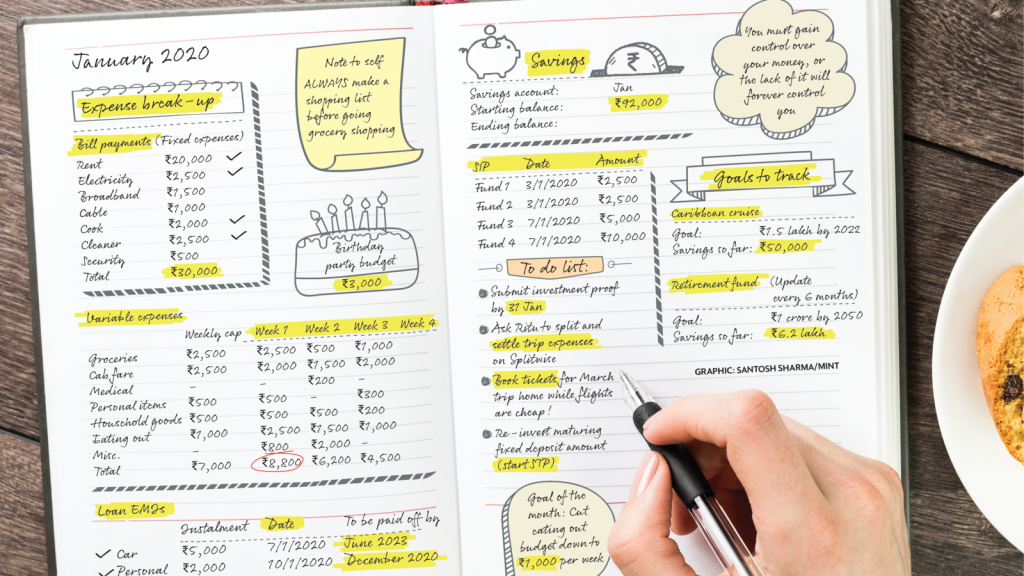 January 2020
Expense break-up
Bill payments (Fixed expenses)
Rent ₹20,000 ✓
Electricity ₹2,500 ✓
Broadband ₹1,500
Cable ₹1,000
Cook ₹2,000 ✓
Cleaner ₹2,500 ✓
Security ₹500
Total ₹30,000
Note to self
ALWAYS make a
shopping list
before going
grocery shopping
Birthday
party budget
₹3,000
Variable expenses
Weekly cap Week 1 Week 2 Week 3 Week 4
Groceries ₹2,500 ₹2,500 ₹500 ₹1,000
Cab fare ₹2,500 ₹2,000 ₹1,500 ₹2,000
Medical - - ₹200 -
Personal items ₹500 ₹500 - ₹300
Household goods ₹500 ₹500 ₹500 ₹200
Eating out ₹1,000 ₹2,500 ₹1,500 ₹1,000
Misc. ₹800 ₹2,000 -
Total ₹7,000 ₹8,800 ₹6,200 ₹4,500
Loan EMIs
Instalment Date To be paid off by
✓ Car ₹5,000 7/1/2020 June 2023
✓ Personal ₹2,000 10/1/2020 December 2020
Savings
₹
Savings account: Jan
Starting balance: ₹92,000
Ending balance:
You must gain
control over
your money, or
the lack of it will
forever control
you
SIP Date Amount
Fund 1 3/1/2020 ₹2,500
Fund 2 3/1/2020 ₹2,500
Fund 3 7/1/2020 ₹5,000
Fund 4 7/1/2020 ₹10,000
To do list:
Submit investment proof
by 31 Jan
Ask Ritu to split and
settle trip expenses
on Splitwise
Book tickets for March
trip home while flights
are cheap!
Re-invest maturing
fixed deposit amount
(start STP)
Goal of the
month: Cut
eating out
budget down to
₹1,000 per week
Goals to track
Caribbean cruise
Goal: ₹1.5 lakh by 2022
Savings so far: ₹50,000
Retirement fund (Update
every 6 months)
Goal: ₹1 crore by 2050
Savings so far: ₹6.2 lakh
GRAPHIC: SANTOSH SHARMA/MINT